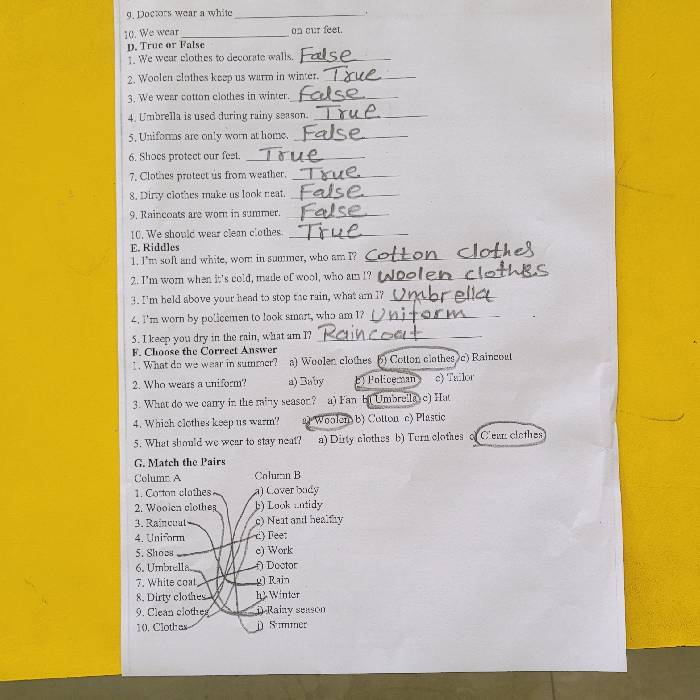 9. Doctors wear a white ____________.
10. We wear ____________ on our feet.
D. True or False
1. We wear clothes to decorate walls. False
2. Woolen clothes keep us warm in winter. True
3. We wear cotton clothes in winter. False
4. Umbrella is used during rainy season. True
5. Uniforms are only worn at home. False
6. Shoes protect our feet. True
7. Clothes protect us from weather. True
8. Dirty clothes make us look neat. False
9. Raincoats are worn in summer. False
10. We should wear clean clothes. True
E. Riddles
1. I'm soft and white, worn in summer, who am I? Cotton clothes
2. I'm worn when it's cold, made of wool, who am I? Woolen clothes
3. I'm held above your head to stop the rain, what am I? Umbrella
4. I'm worn by policemen to look smart, who am I? Uniform
5. I keep you dry in the rain, what am I? Raincoat
F. Choose the Correct Answer
1. What do we wear in summer? a) Woolen clothes b) Cotton clothes c) Raincoat
2. Who wears a uniform? a) Baby b) Policeman c) Tailor
3. What do we carry in the rainy season? a) Fan b) Umbrella c) Hat
4. Which clothes keep us warm? a) Woolen b) Cotton c) Plastic
5. What should we wear to stay neat? a) Dirty clothes b) Torn clothes c) Clean clothes
G. Match the Pairs
Column A Column B
1. Cotton clothes a) Cover body
2. Woolen clothes b) Look untidy
3. Raincoat c) Neat and healthy
4. Uniform d) Feet
5. Shoes e) Work
6. Umbrella f) Doctor
7. White coat g) Rain
8. Dirty clothes h) Winter
9. Clean clothes i) Rainy season
10. Clothes j) Summer